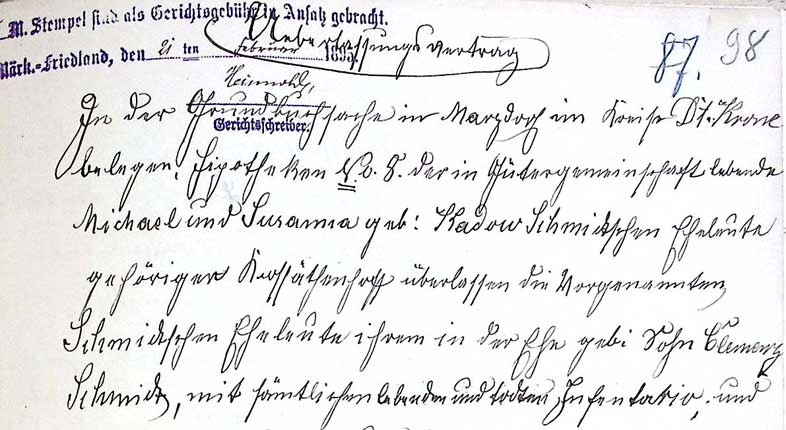 M. Stempel sind als Gerichtsgebühr in Ansatz gebracht.
Überlassungsvertrag
Märk.-Friedland, den 21 ten Februar 1895.
87. 98
Gerichtsschreiber.
In der Grundbuchsache in Marzdorf im Kreise Dt. Krone
belegen, Hipotheken No. 8. der in Gütergemeinschaft lebende
Michael und Susanna geb: Radow Schmidtschen Eheleute
gehöriger Kossäthenhoff überlassen die Vorgenannten
Schmidtschen Eheleute ihrem in der Ehe geb: Sohn Clemenz
Schmidt, mit sämtlichen lebenden und todten Infentario, und